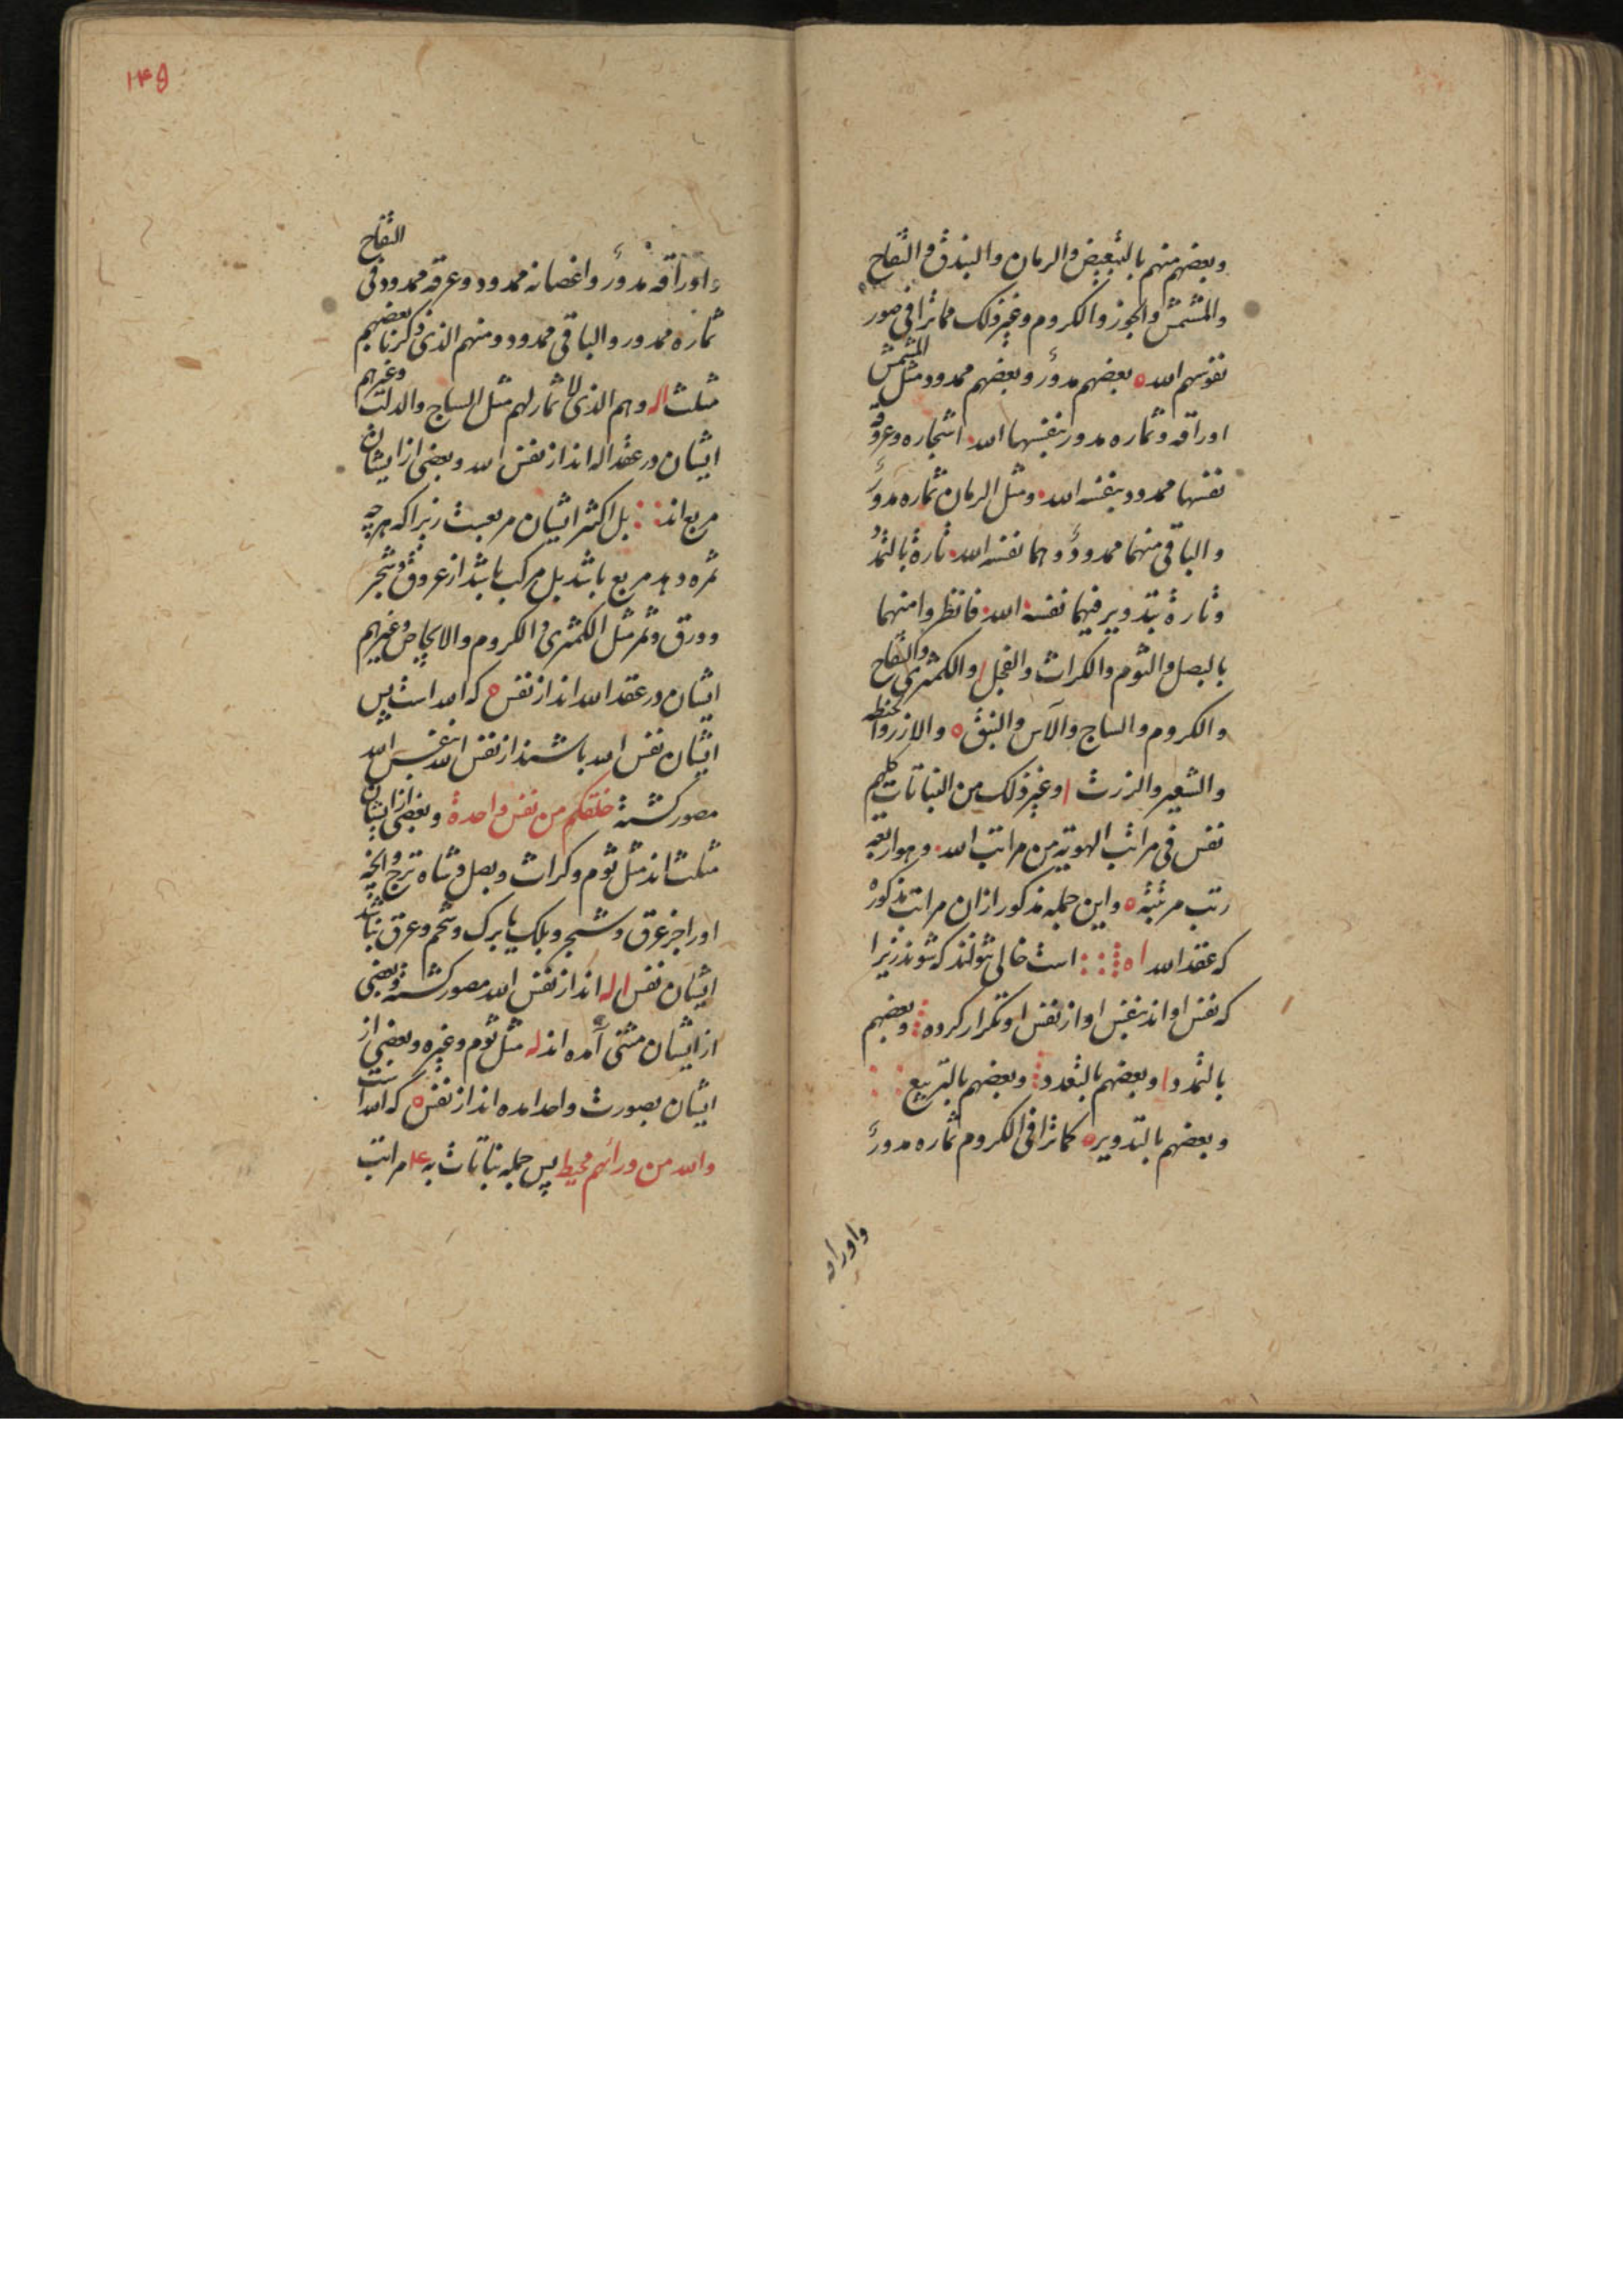 وبعضهم منهم بالتبعیض والرمان والبندق والتفاح
والمشمش والجوز والکروم وغیر ذلک مما ترا فی صور
نفوسهم الله ه بعضهم مدورٌ وبعضهم ممدود مثل المشمش
اوراقه وثماره مدور بنفسها الله اشجاره وعروقه
نفسها ممدود بنفسه الله ومثل الرمان ثماره مدورٌ
والباقی منهما ممدودٌ وهما نفسه الله تارة بالتمدُ
وتارة بتدویر فیهما نفسه الله فانظروا منهما
بالبصل والثوم والکراث والفجل ا والکمثری والتفاح
والکروم والساج والآس والنبق ه والارز والحنطه
والشعیر والزرت ا وغیر ذلک من النباتات کلهم
نفس فی مراتب الهویة من مراتب الله وهو اربعه
رتب مرتبه ه واین جمله مذکور ازان مراتب مذکوره
که عقد الله ا ه است خالی نتوانند که شوند زیرا
که نفس او اند بنفس او از نفس او تکرار کرده وبعضهم
بالتمدد ا وبعضهم بالتعدد وبعضهم بالتربیع
وبعضهم بالتدویر ه کما ترا فی الکروم ثماره مدورٌ
واوراقه
۱۴۵
واوراقه مدورٌ واغصانه ممدود وعرقه ممدود فی التفاح
ثماره ممدور والباقی ممدود ومنهم الذی ذکرنا بعضهم
مثلث اله وهم الذی لا ثمار لهم مثل الساج والدلب وغیرهم
ایشان در عقد اله اند از نفس الله وبعضی از ایشان
مربع اند بل اکثر ایشان مربعست زیرا که هرچه
ثمره دهد مربع باشد بل مرکب باشد از عروق وشجر
وورق وثمر مثل الکمثری والکروم والاجاص وغیرهم
ایشان در عقد الله اند از نفس ه که الله است پس
ایشان نفس الله باشند از نفس الله بنفس الله
مصور کشته خلقکم من نفس واحدة وبعضی از ایشان
مثلث اند مثل ثوم وکراث وبصل وشاه ترج وآنچه
اورا جز عرق وشجر وبلک یا برک وتخم وعرق نباشد
ایشان نفس اله اند از نفس الله مصور کشته وبعضی
از ایشان مثنی آمده اند له مثل ثوم وغیره وبعضی از
ایشان بصورت واحد امده اند از نفس ه که الله است
والله من ورائهم محیط پس جمله نباتات به ۴ مراتب